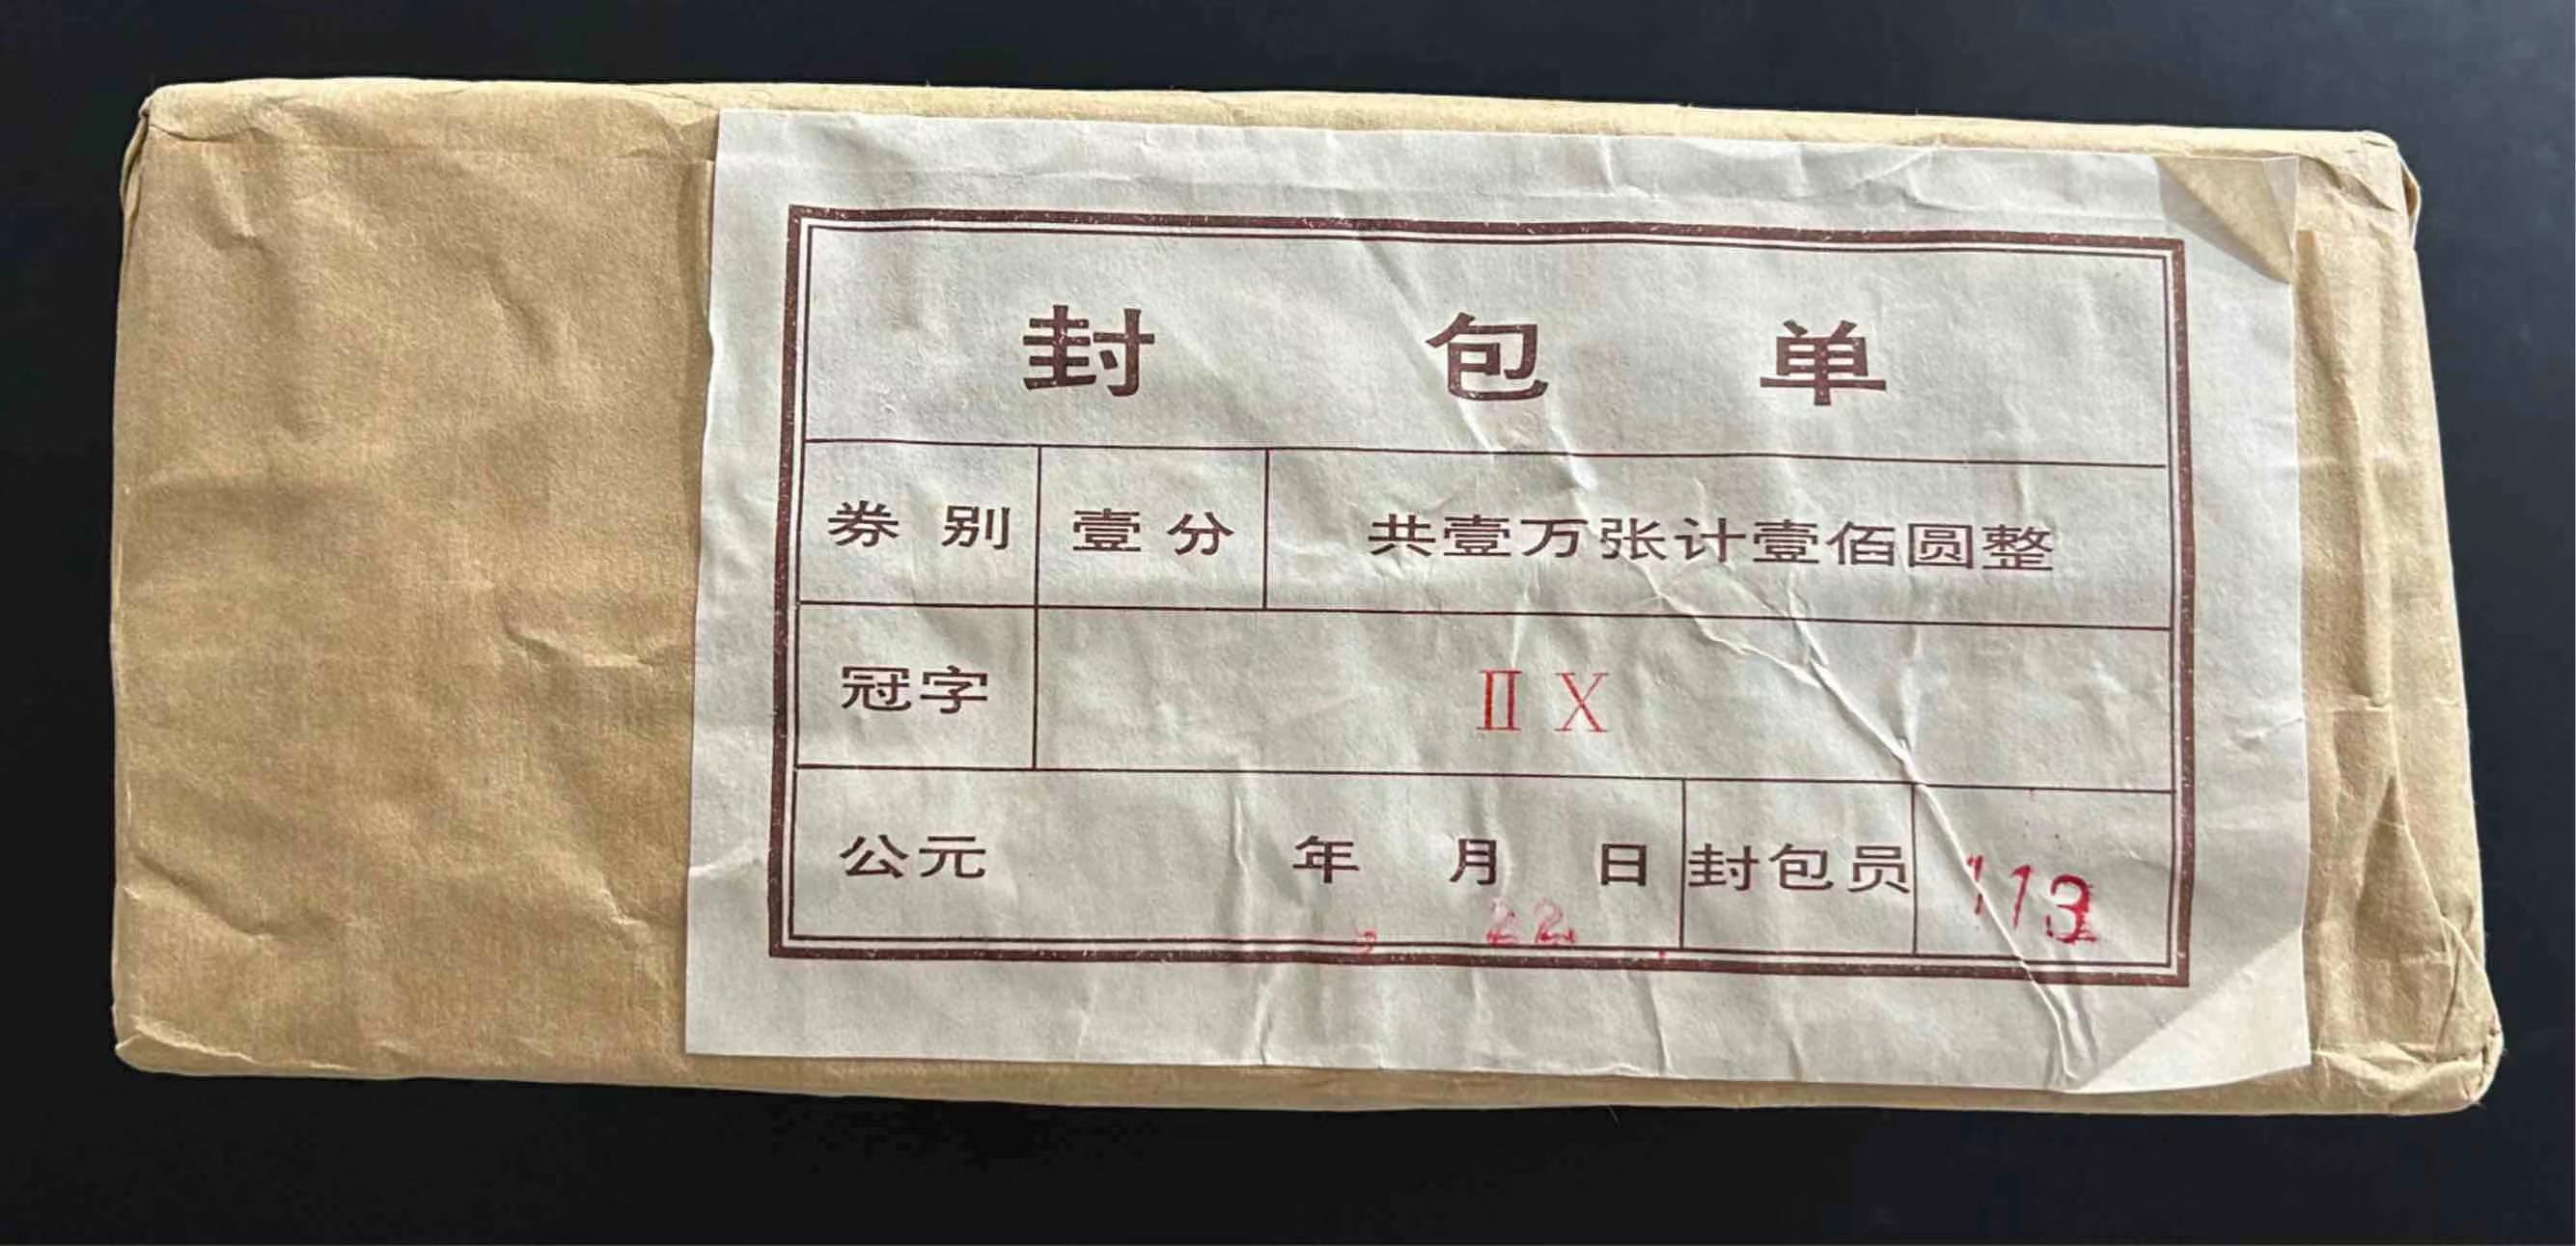 封包单
券别 壹分 共壹万张计壹佰圆整
冠字 ⅡX
公元 年 月 日 封包员 113
22